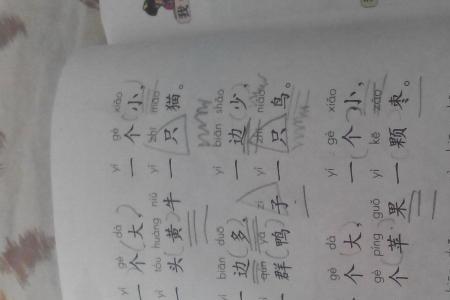 我
yí gè dà yí gè xiǎo
一个大，一个小，
yì tóu huáng niú yì zhī māo
一头黄牛一只猫。
biān duō yì biān shǎo
一边多，一边少，
qún yā zi yì zhī niǎo
群鸭子一只鸟。
gè dà yí gè xiǎo
个大，一个小，
gè píng guǒ yì kē zǎo
个苹果一颗枣。